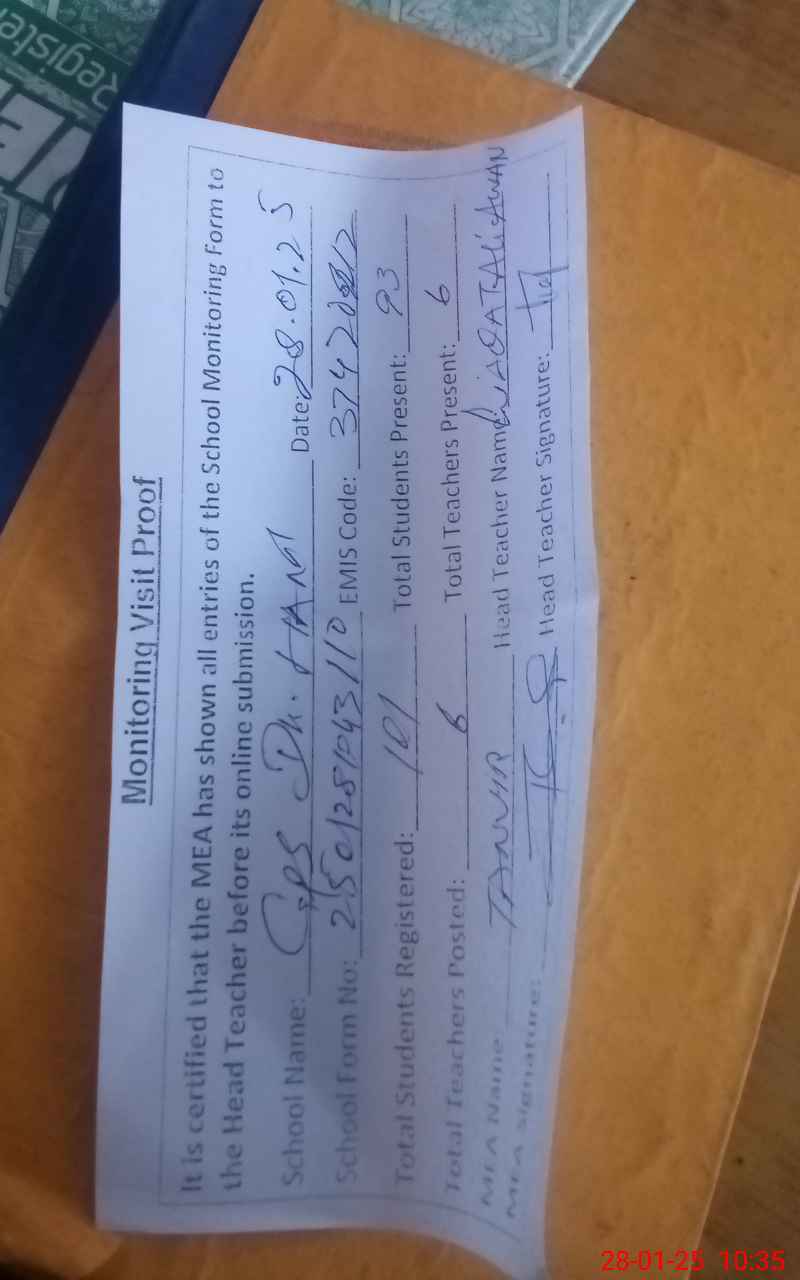 Register
Monitoring Visit Proof
It is certified that the MEA has shown all entries of the School Monitoring Form to
the Head Teacher before its online submission.
School Name: GPS Dk. Date: 28.01.25
School Form No: EMIS Code:
Total Students Registered: 101 Total Students Present: 93
Total Teachers Posted: 6 Total Teachers Present: 6
MEA Name: TANVIR Head Teacher Name: LIAQAT ALI AWAN
MEA Signature: Head Teacher Signature:
28-01-25 10:35